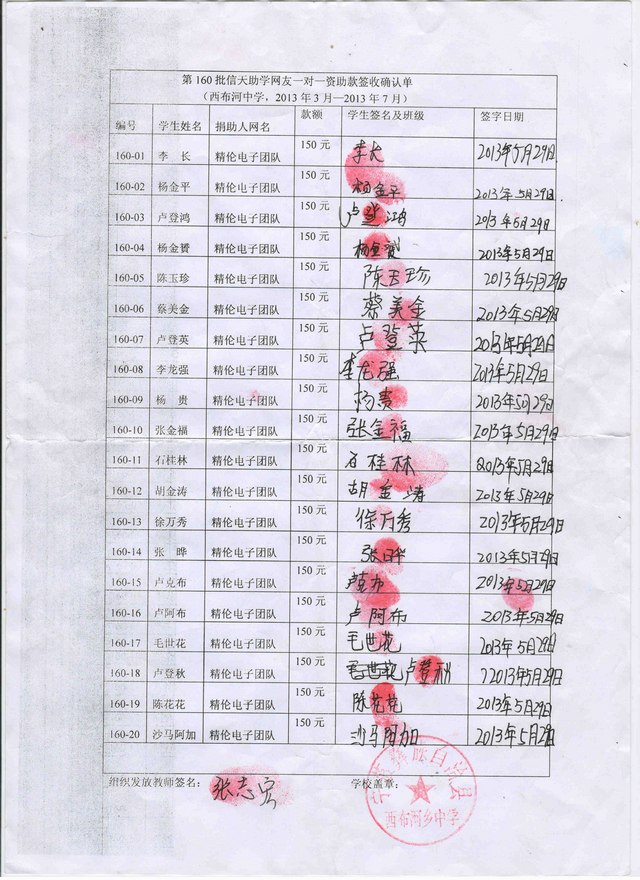 第 160 批信天助学网友一对一资助款签收确认单
（西布河中学，2013 年 3 月—2013 年 7 月）
编号 学生姓名 捐助人网名 款额 学生签名及班级 签字日期
160-01 李 长 精伦电子团队 150 元 李长 2013年5月29日
160-02 杨金平 精伦电子团队 150 元 杨金平 2013年5月29日
160-03 卢登鸿 精伦电子团队 150 元 卢登鸿 2013年5月29日
160-04 杨金赟 精伦电子团队 150 元 杨金赟 2013年5月29日
160-05 陈玉珍 精伦电子团队 150 元 陈玉珍 2013年5月29日
160-06 蔡美金 精伦电子团队 150 元 蔡美金 2013年5月29日
160-07 卢登英 精伦电子团队 150 元 卢登英 2013年5月29日
160-08 李龙强 精伦电子团队 150 元 李龙强 2013年5月29日
160-09 杨 贵 精伦电子团队 150 元 杨贵 2013年5月29日
160-10 张金福 精伦电子团队 150 元 张金福 2013年5月29日
160-11 石桂林 精伦电子团队 150 元 石桂林 2013年5月29日
160-12 胡金涛 精伦电子团队 150 元 胡金涛 2013年5月29日
160-13 徐万秀 精伦电子团队 150 元 徐万秀 2013年5月29日
160-14 张 晔 精伦电子团队 150 元 张晔 2013年5月29日
160-15 卢克布 精伦电子团队 150 元 卢克布 2013年5月29日
160-16 卢阿布 精伦电子团队 150 元 卢阿布 2013年5月29日
160-17 毛世花 精伦电子团队 150 元 毛世花 2013年5月29日
160-18 卢登秋 精伦电子团队 150 元 卢登秋 2013年5月29日
160-19 陈花花 精伦电子团队 150 元 陈花花 2013年5月29日
160-20 沙马阿加 精伦电子团队 150 元 沙马阿加 2013年5月29日
组织发放教师签名： 张志宏 学校盖章：
西布河乡中学